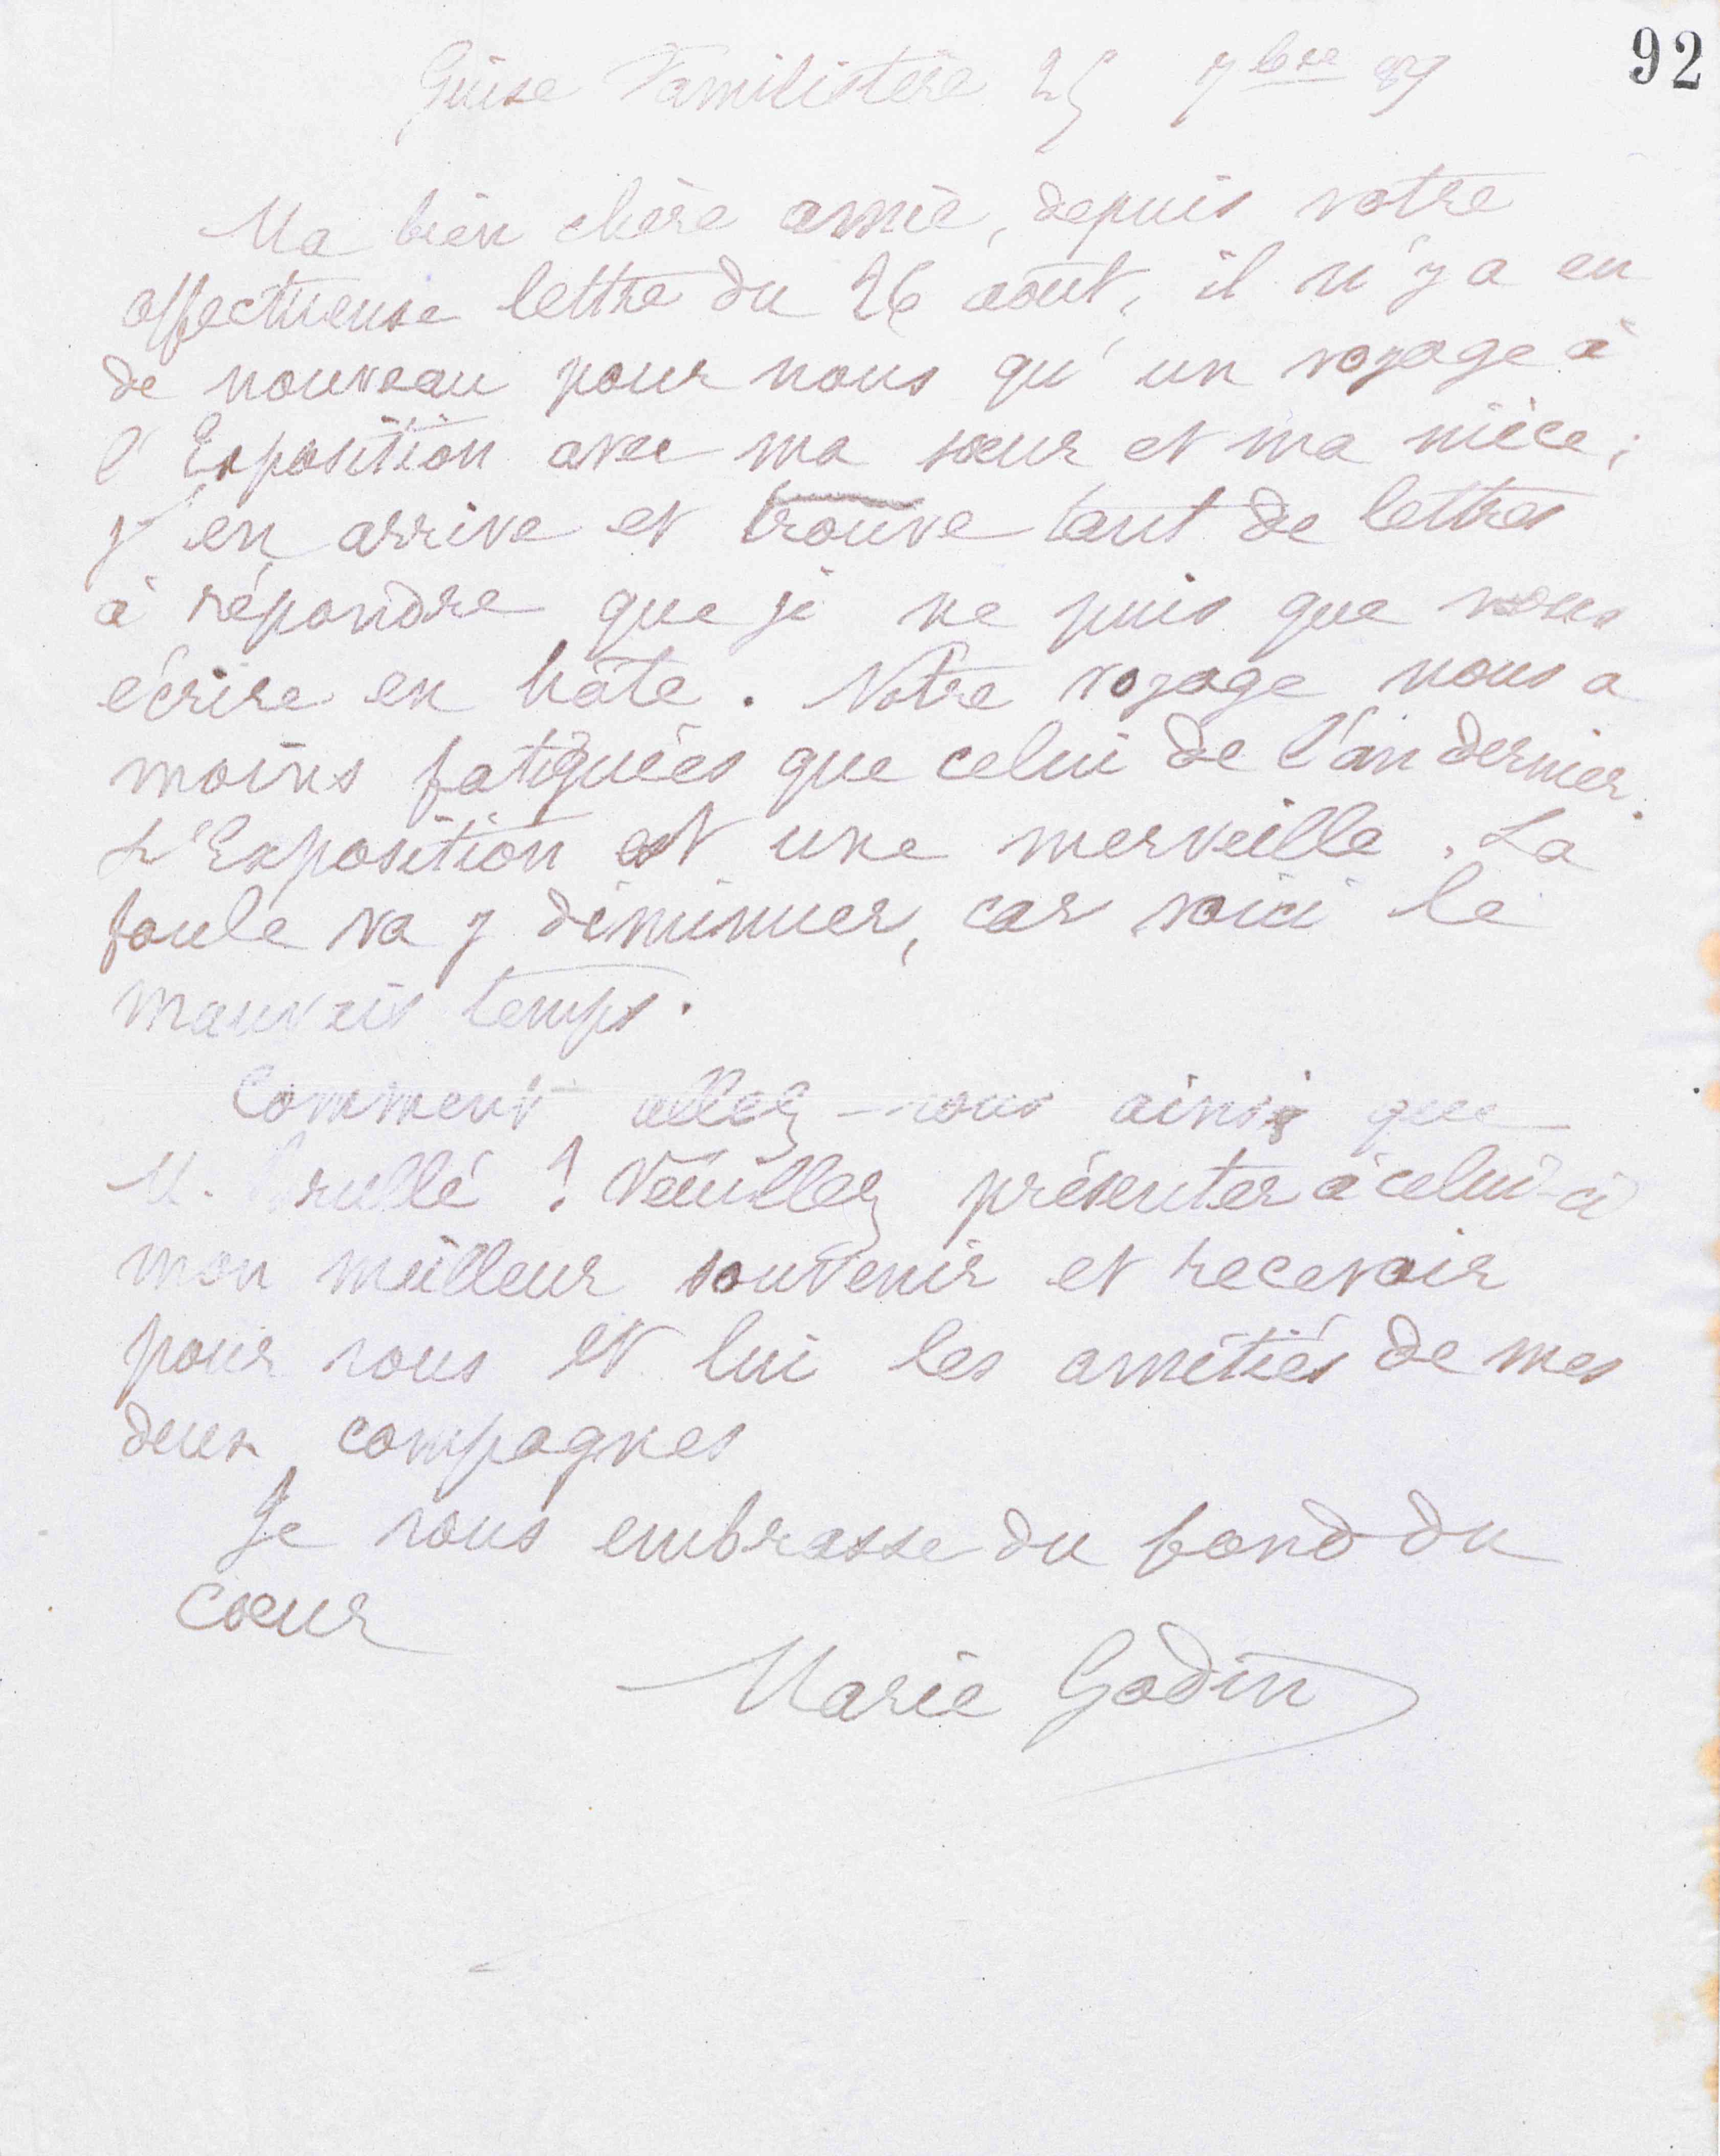 92
Guise Familistère 25 7bre 89
Ma bien chère amie, depuis votre
affectueuse lettre du 26 août, il n'y a eu
de nouveau pour nous qu'un voyage à
l'Exposition avec ma sœur et ma nièce ;
j'en arrive et trouve tant de lettres
à répondre que je ne puis que vous
écrire en hâte. Notre voyage nous a
moins fatiguées que celui de l'an dernier.
L'Exposition est une merveille. La
foule va y diminuer, car voici le
mauvais temps.
Comment allez-vous ainsi que
M. ? Veuillez présenter à celui-ci
mon meilleur souvenir et recevoir
pour vous et lui les amitiés de mes
deux compagnes
Je vous embrasse du fond du
cœur
Marie Godin